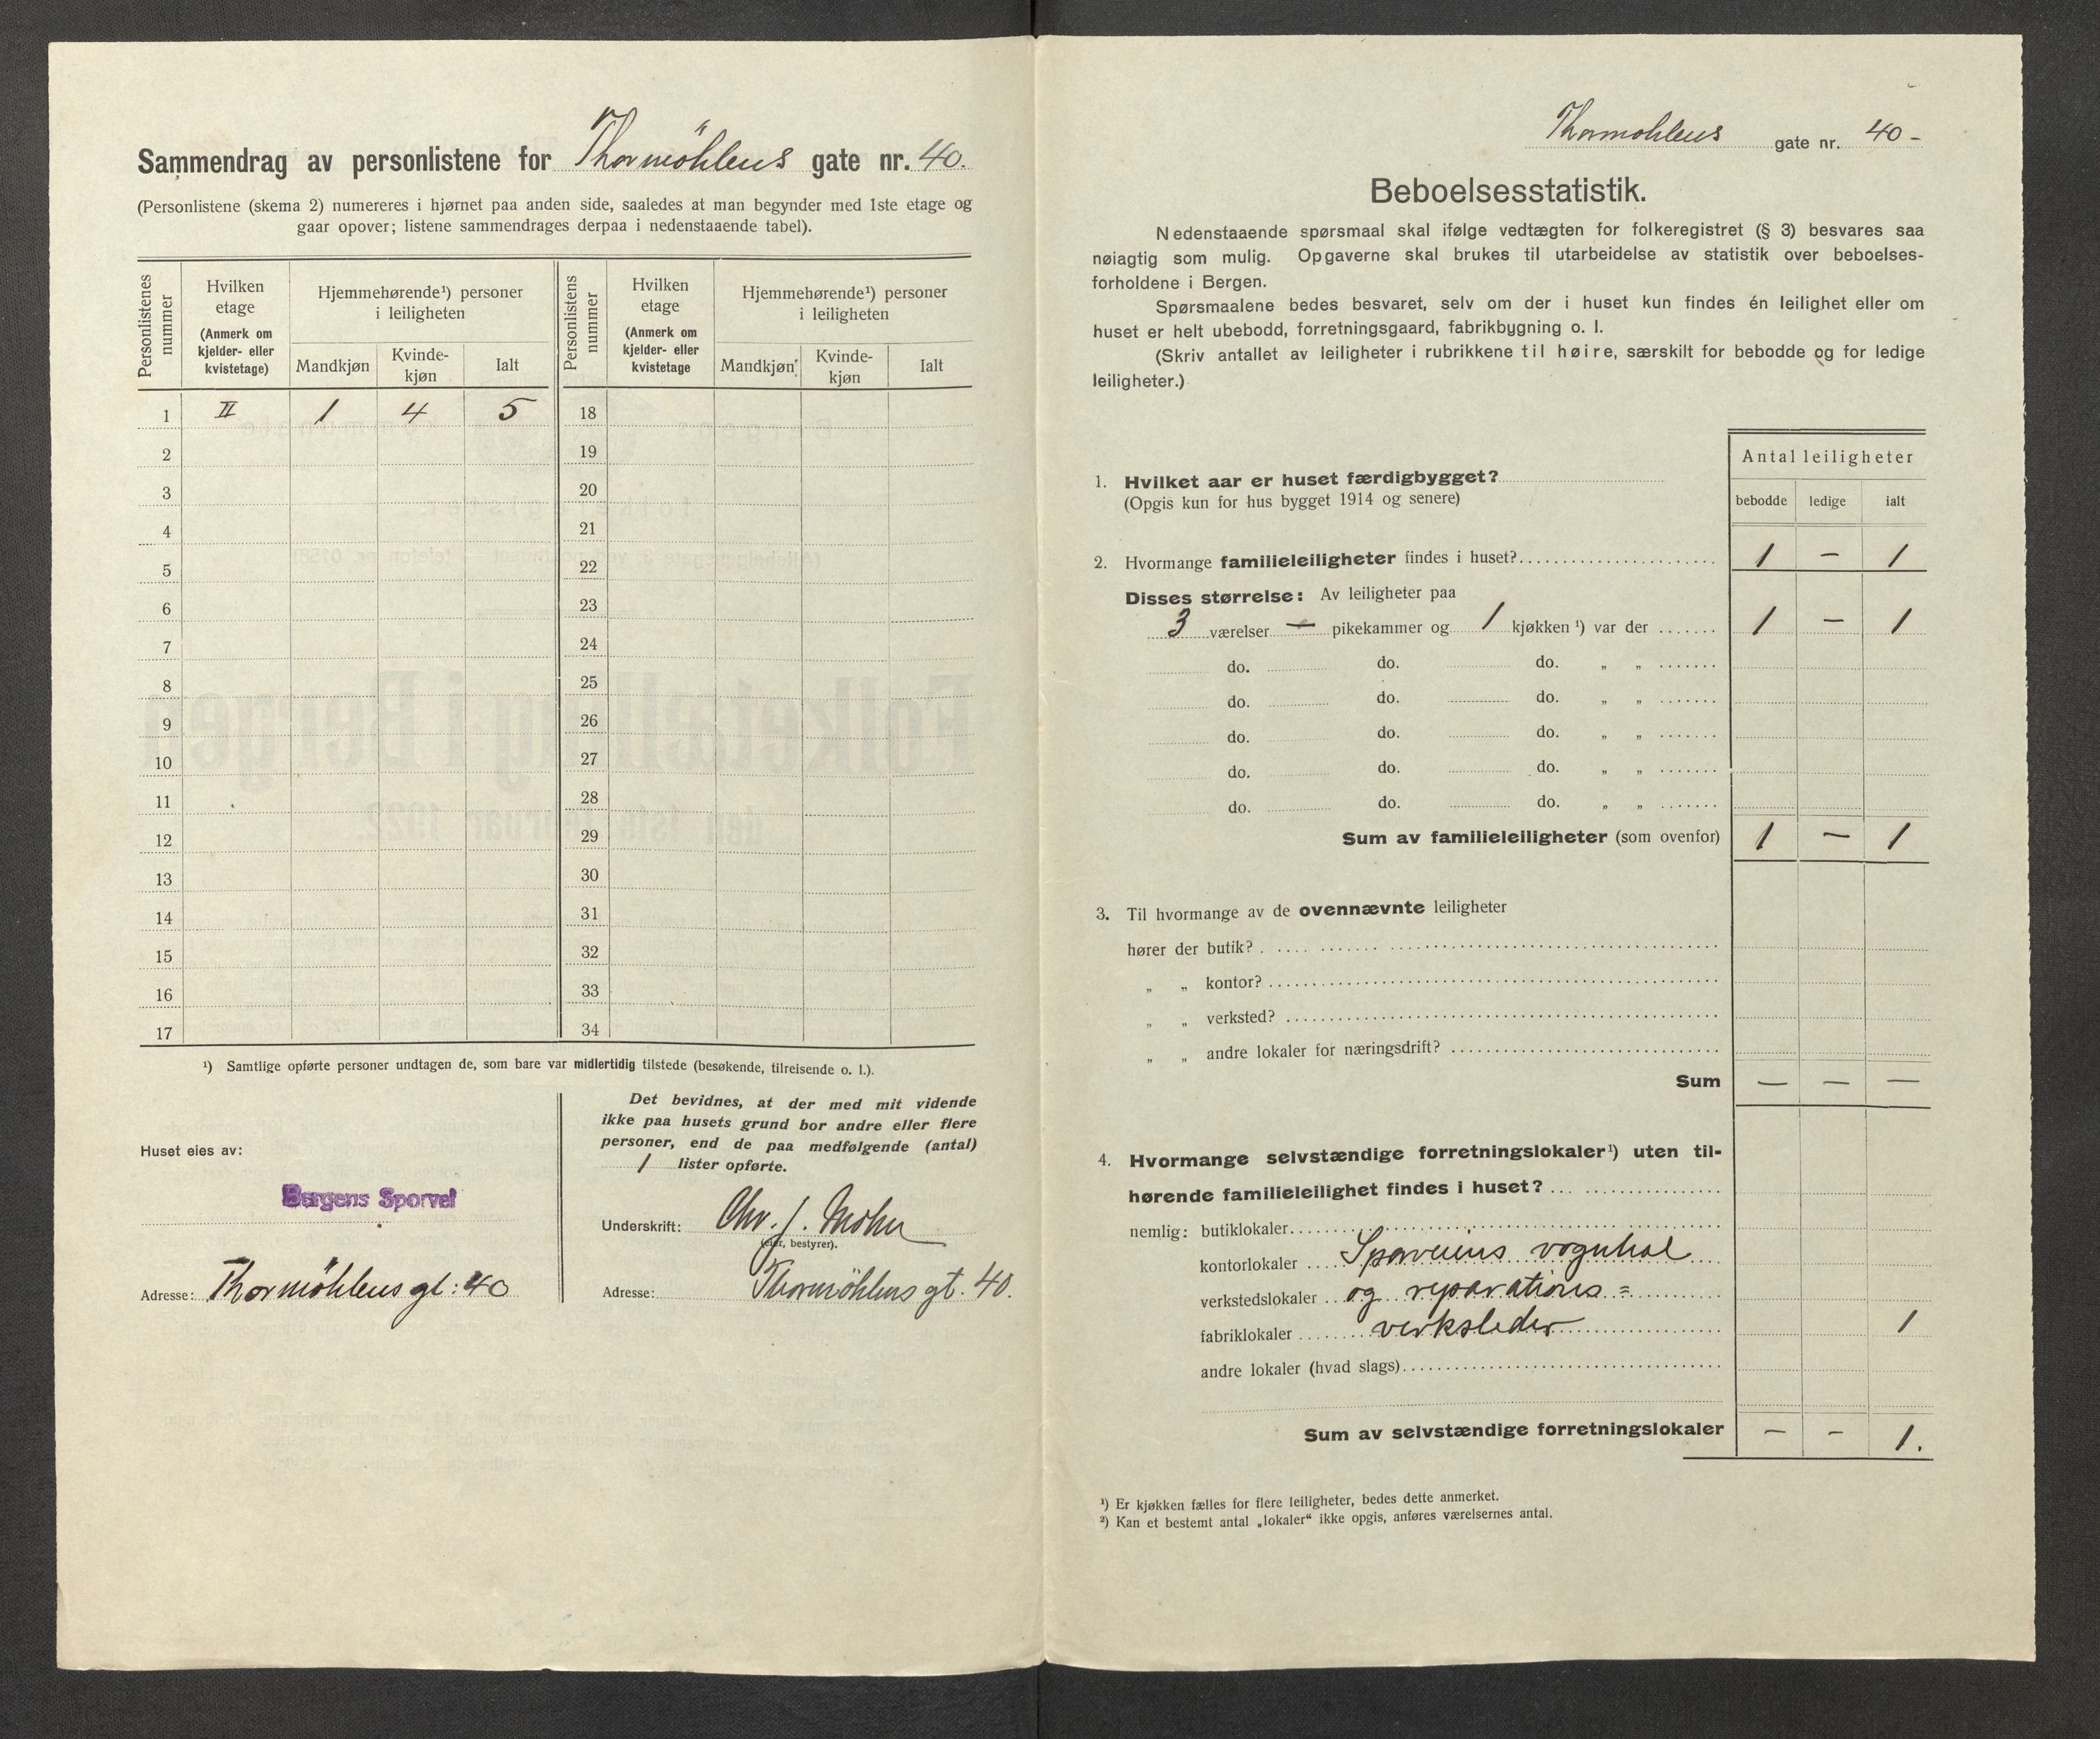 Sammendrag av personlistene for Thormöhlens gate nr. 40.
(Personlistene (skema 2) numereres i hjørnet paa anden side, saaledes at man begynder med 1ste etage og
gaar opover; listene sammendrages derpaa i nedenstaaende tabel).
Personlistenes nummer
Hvilken etage (Anmerk om kjelder- eller kvistetage)
Hjemmehørende¹) personer i leiligheten
Mandkjøn Kvinde-kjøn Ialt
Personlistens nummer
Hvilken etage (Anmerk om kjelder- eller kvistetage
Hjemmehørende¹) personer i leiligheten
Mandkjøn Kvinde-kjøn Ialt
1 II 1 4 5 18
2 19
3 20
4 21
5 22
6 23
7 24
8 25
9 26
10 27
11 28
12 29
13 30
14 31
15 32
16 33
17 34
¹) Samtlige opførte personer undtagen de, som bare var midlertidig tilstede (besøkende, tilreisende o. l.).
Huset eies av:
Bergens Sporvei
Adresse: Thormöhlens gt: 40
Det bevidnes, at der med mit vidende
ikke paa husets grund bor andre eller flere
personer, end de paa medfølgende (antal)
1 lister opførte.
Underskrift: Chr. J. Mohn
(eier, bestyrer).
Adresse: Thormöhlens gt. 40.
Thormohlens gate nr. 40 -
Beboelsesstatistik.
Nedenstaaende spørsmaal skal ifølge vedtægten for folkeregistret (§ 3) besvares saa
nøiagtig som mulig. Opgaverne skal brukes til utarbeidelse av statistik over beboelses-
forholdene i Bergen.
Spørsmaalene bedes besvaret, selv om der i huset kun findes én leilighet eller om
huset er helt ubebodd, forretningsgaard, fabrikbygning o. l.
(Skriv antallet av leiligheter i rubrikkene til høire, særskilt for bebodde og for ledige
leiligheter.)
Antal leiligheter
bebodde ledige ialt
1. Hvilket aar er huset færdigbygget?
(Opgis kun for hus bygget 1914 og senere)
2. Hvormange familieleiligheter findes i huset? 1 — 1
Disses størrelse: Av leiligheter paa
3 værelser — pikekammer og 1 kjøkken ¹) var der 1 — 1
do. do. do. „ „
do. do. do. „ „
do. do. do. „ „
do. do. do. „ „
do. do. do. „ „
Sum av familieleiligheter (som ovenfor) 1 — 1
3. Til hvormange av de ovennævnte leiligheter
hører der butik?
„ „ kontor?
„ „ verksted?
„ „ andre lokaler for næringsdrift?
Sum — — —
4. Hvormange selvstændige forretningslokaler¹) uten til-
hørende familieleilighet findes i huset?
nemlig: butiklokaler
kontorlokaler Sporveiens vognhal
verkstedslokaler og reparations=
fabriklokaler verksteder 1
andre lokaler (hvad slags)
Sum av selvstændige forretningslokaler — — 1.
¹) Er kjøkken fælles for flere leiligheter, bedes dette anmerket.
²) Kan et bestemt antal „lokaler“ ikke opgis, anføres værelsernes antal.